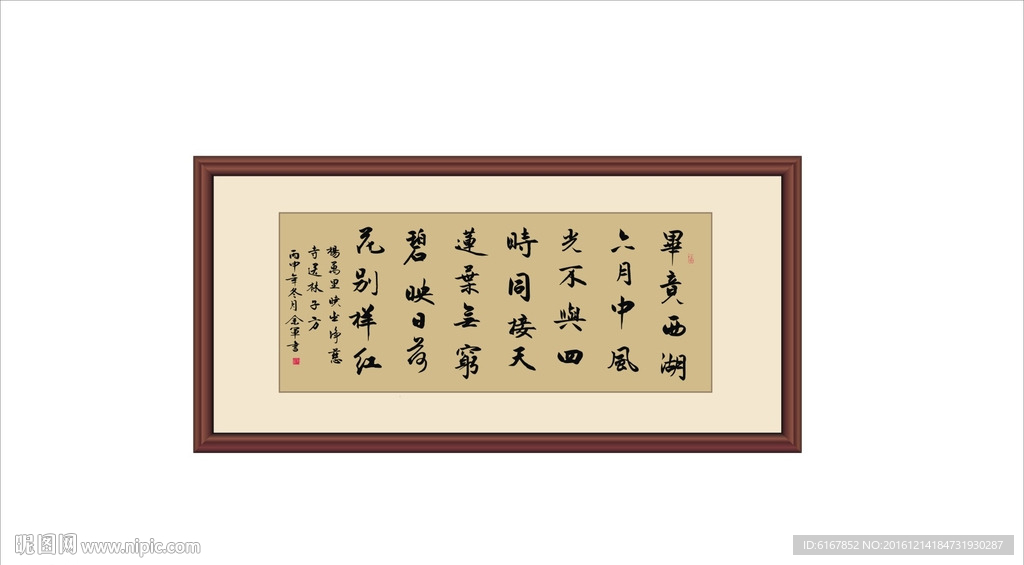 畢竟西湖
六月中風
光不與四
時同接天
蓮葉無窮
碧映日荷
花别樣红
楊萬里映出淨慈
寺送林子方
丙申年冬月余軍書
昵图网 www.nipic.com
ID:6167852 NO:20161214184731930287